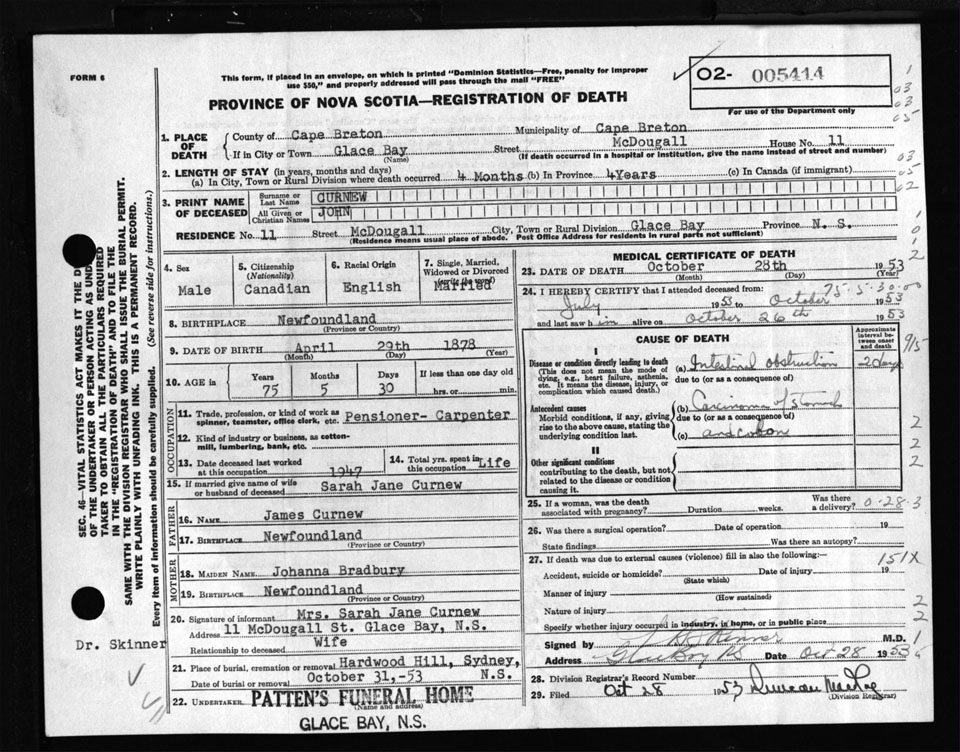 FORM 6
This form, if placed in an envelope, on which is printed "Dominion Statistics—Free, penalty for improper
use $50," and properly addressed will pass through the mail "FREE"
O2- 005414
For use of the Department only
PROVINCE OF NOVA SCOTIA—REGISTRATION OF DEATH
1. PLACE OF DEATH County of Cape Breton Municipality of Cape Breton
If in City or Town Glace Bay Street McDougall House No. 11
(Name) (If death occurred in a hospital or institution, give the name instead of street and number)
2. LENGTH OF STAY (in years, months and days)
(a) In City, Town or Rural Division where death occurred 4 Months (b) In Province 4Years (c) In Canada (if immigrant)
3. PRINT NAME OF DECEASED Surname or Last Name CURNEW
All Given or Christian Names JOHN
RESIDENCE No. 11 Street McDougall City, Town or Rural Division Glace Bay Province N. S.
(Residence means usual place of abode. Post Office Address for residents in rural parts not sufficient)
4. Sex Male
5. Citizenship (Nationality) Canadian
6. Racial Origin English
7. Single, Married, Widowed or Divorced (write the word) Married
8. BIRTHPLACE Newfoundland
(Province or Country)
9. DATE OF BIRTH April 29th 1878
(Month) (Day) (Year)
10. AGE in Years 75 Months 5 Days 30 If less than one day old hrs. or min.
OCCUPATION
11. Trade, profession, or kind of work as spinner, teamster, office clerk, etc. Pensioner- Carpenter
12. Kind of industry or business, as cotton-mill, lumbering, bank, etc.
13. Date deceased last worked at this occupation 1947
14. Total yrs. spent in this occupation Life
15. If married give name of wife or husband of deceased Sarah Jane Curnew
FATHER
16. NAME James Curnew
17. BIRTHPLACE Newfoundland
(Province or Country)
MOTHER
18. MAIDEN NAME Johanna Bradbury
19. BIRTHPLACE Newfoundland
(Province or Country)
20. Signature of informant Mrs. Sarah Jane Curnew
Address 11 McDougall St. Glace Bay, N.S.
Relationship to deceased Wife
21. Place of burial, cremation or removal Hardwood Hill, Sydney, N.S.
Date of burial or removal October 31,-53
22. UNDERTAKER PATTEN'S FUNERAL HOME
(Name and address)
GLACE BAY, N.S.
MEDICAL CERTIFICATE OF DEATH
23. DATE OF DEATH October 28th 1953
(Month) (Day) (Year)
75-5-30-00
24. I HEREBY CERTIFY that I attended deceased from:
July 1953 to October 1953
and last saw him alive on October 26th 1953
CAUSE OF DEATH
Approximate interval between onset and death
I
Disease or condition directly leading to death
(This does not mean the mode of dying, e.g., heart failure, asthenia, etc. It means the disease, injury, or complication which caused death.)
(a) Intestinal obstruction 2 days
due to (or as a consequence of)
Antecedent causes
Morbid conditions, if any, giving rise to the above cause, stating the underlying condition last.
(b) Carcinoma of Stomach
due to (or as a consequence of)
(c) and colon
II
Other significant conditions
contributing to the death, but not related to the disease or condition causing it.
25. If a woman, was the death associated with pregnancy? Duration weeks. Was there a delivery?
0-28-3
26. Was there a surgical operation? Date of operation 19
State findings Was there an autopsy?
27. If death was due to external causes (violence) fill in also the following:—
151X
Accident, suicide or homicide? Date of injury 19
(State which)
Manner of injury
(How sustained)
Nature of injury
Specify whether injury occurred in industry, in home, or in public place
Signed by Skinner M.D.
Address Glace Bay NS Date Oct 28 1953
28. Division Registrar's Record Number
29. Filed Oct 28 1953 Duncan
(Division Registrar)
SEC. 46—VITAL STATISTICS ACT MAKES IT THE
OF THE UNDERTAKER OR PERSON ACTING AS UNDER
TAKER TO OBTAIN ALL THE PARTICULARS REQUIRED
IN THE "REGISTRATION OF DEATH" AND TO FILE THE
SAME WITH THE DIVISION REGISTRAR WHO SHALL ISSUE THE BURIAL PERMIT.
WRITE PLAINLY WITH UNFADING INK. THIS IS A PERMANENT RECORD.
Every item of information should be carefully supplied. (See reverse side for instructions.)
Dr. Skinner